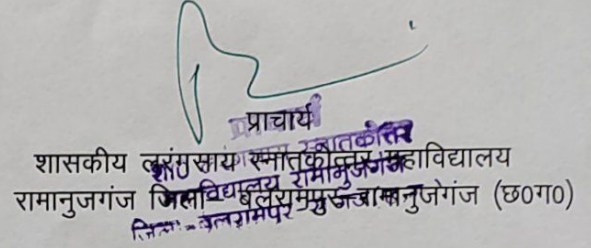 प्राचार्य
शासकीय लरंगसाय स्नातकोत्तर महाविद्यालय
रामानुजगंज जिला बलरामपुर-रामानुजगंज (छ0ग0)
स्नातकोत्तर
महाविद्यालय रामानुजगंज
जिला-बलरामपुर